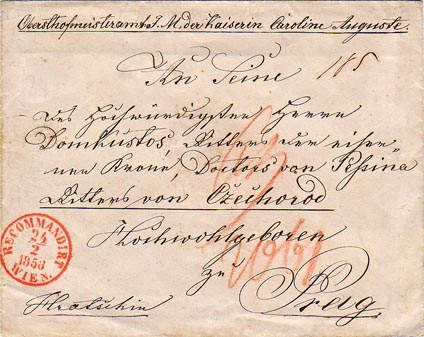 Obersthofmeisteramt I. M. der Kaiserin Caroline Auguste.
An Seine
185
Des Hochwürdigsten Herrn
Domkustos, Ritters der eiser-
nen Krone, Doctors von Pessina
Ritters von Czechorod
Hochwohlgeboren
zu
Prag.
Hratschin
RECOMMANDIRT
24
2
1858
WIEN.